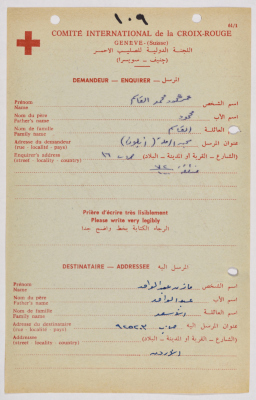 ١٠٩
M/1
COMITÉ INTERNATIONAL de la CROIX-ROUGE
GENÈVE (Suisse)
اللجنة الدولية للصليب الاحمر
(جنيف - سويسرا)
DEMANDEUR - ENQUIRER - المرسل
Prénom
Name
اسم الشخص
محمد القاسم
Nom du père
Father's name
اسم الأب
محمود
Nom de famille
Family name
العائلة
القاسم
Adresse du demandeur
(rue - localité - pays)
عنوان المرسل
Enquirer's address
(street - locality - country)
(الشارع - القرية أو المدينة - البلاد)
Prière d'écrire très lisiblement
Please write very legibly
الرجاء الكتابة بخط واضح جدا
DESTINATAIRE - ADDRESSEE - المرسل اليه
Prénom
Name
اسم الشخص
مازن عبد الواحد
Nom du père
Father's name
اسم الأب
عبد الواحد
Nom de famille
Family name
العائلة
الأسعد
Adresse du destinataire
(rue - localité - pays)
عنوان المرسل اليه
ص.ب
Addressee
(street - locality - country)
(الشارع - القرية أو المدينة - البلاد)
الاردن